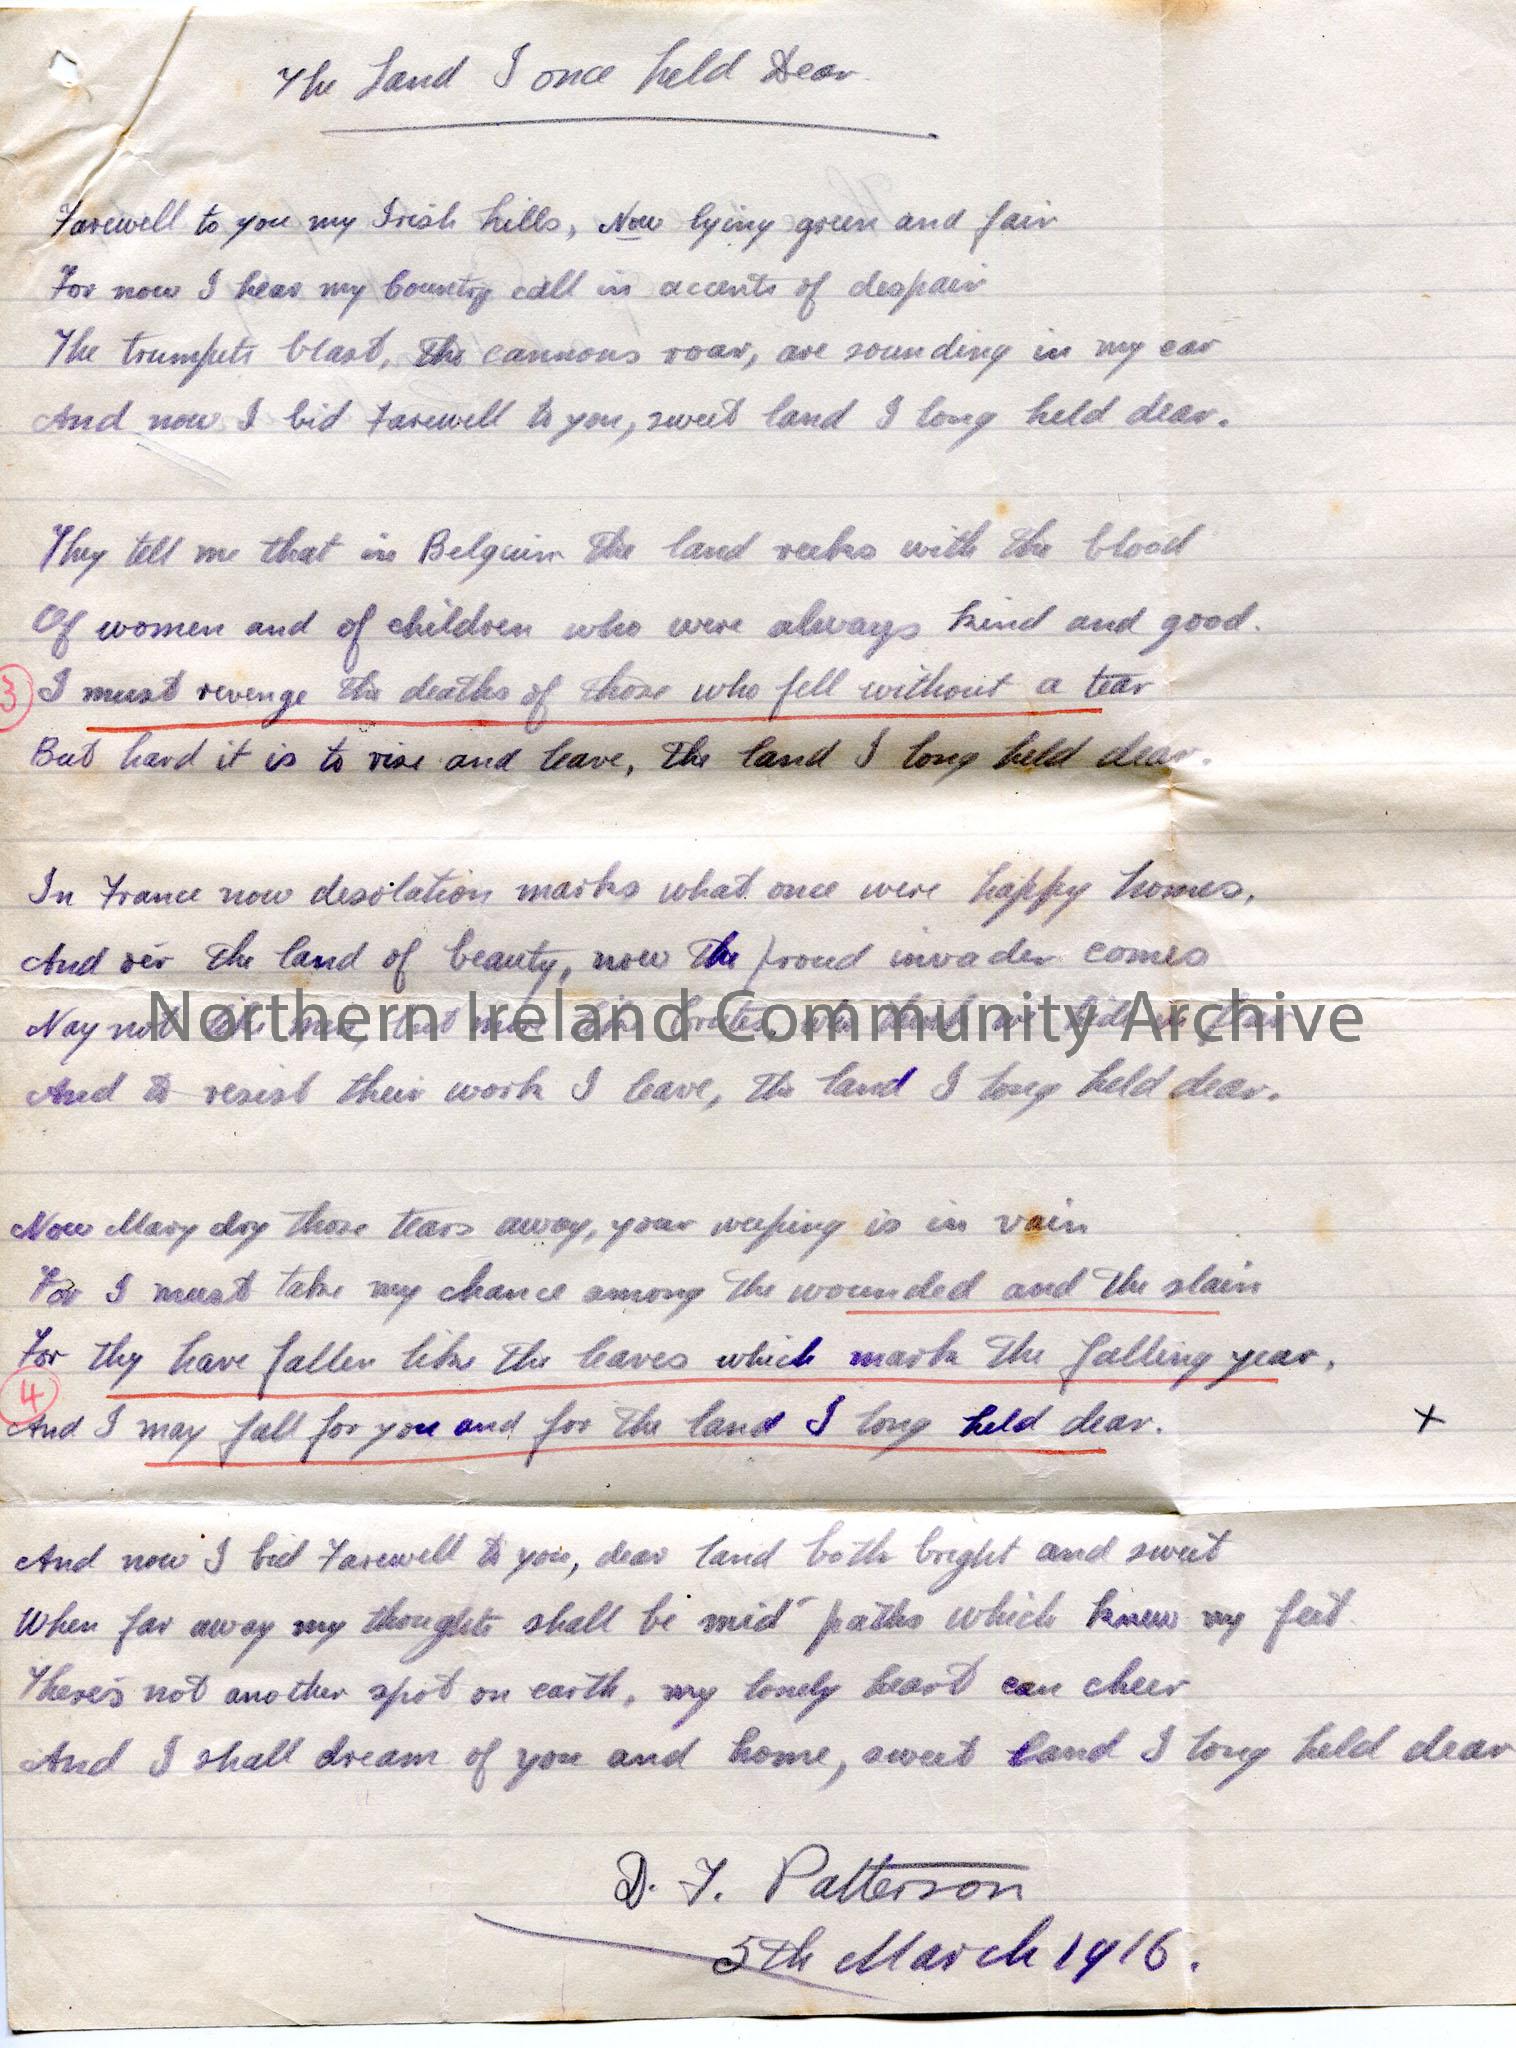 The Land I once held Dear.
Farewell to you my Irish hills, Now lying green and fair
For now I hear my Country call in accents of despair
The trumpets blast, The cannons roar, are sounding in my ear
And now I bid Farewell to you, sweet land I long held dear.
They tell me that in Belguim the land reeks with the blood
Of women and of children who were always kind and good.
3 I must revenge the deaths of those who fell without a tear
But hard it is to rise and leave, the land I long held dear.
In France now desolation marks what once were happy homes,
And o'er the land of beauty, now the proud invader comes
Nay not like men, but more like brutes, who think we hide in fear
Northern Ireland Community Archive
And to resist their work I leave, the land I long held dear.
Now Mary dry those tears away, your weeping is in vain
For I must take my chance among the wounded and the slain
For thy have fallen like the leaves which mark the falling year,
4 And I may fall for you and for the land I long held dear. X
And now I bid Farewell to you, dear land both bright and sweet
When far away my thoughts shall be mid' paths which knew my feet
There's not another spot on earth, my lonely heart can cheer
And I shall dream of you and home, sweet land I long held dear
D. F. Patterson
5th March 1916.